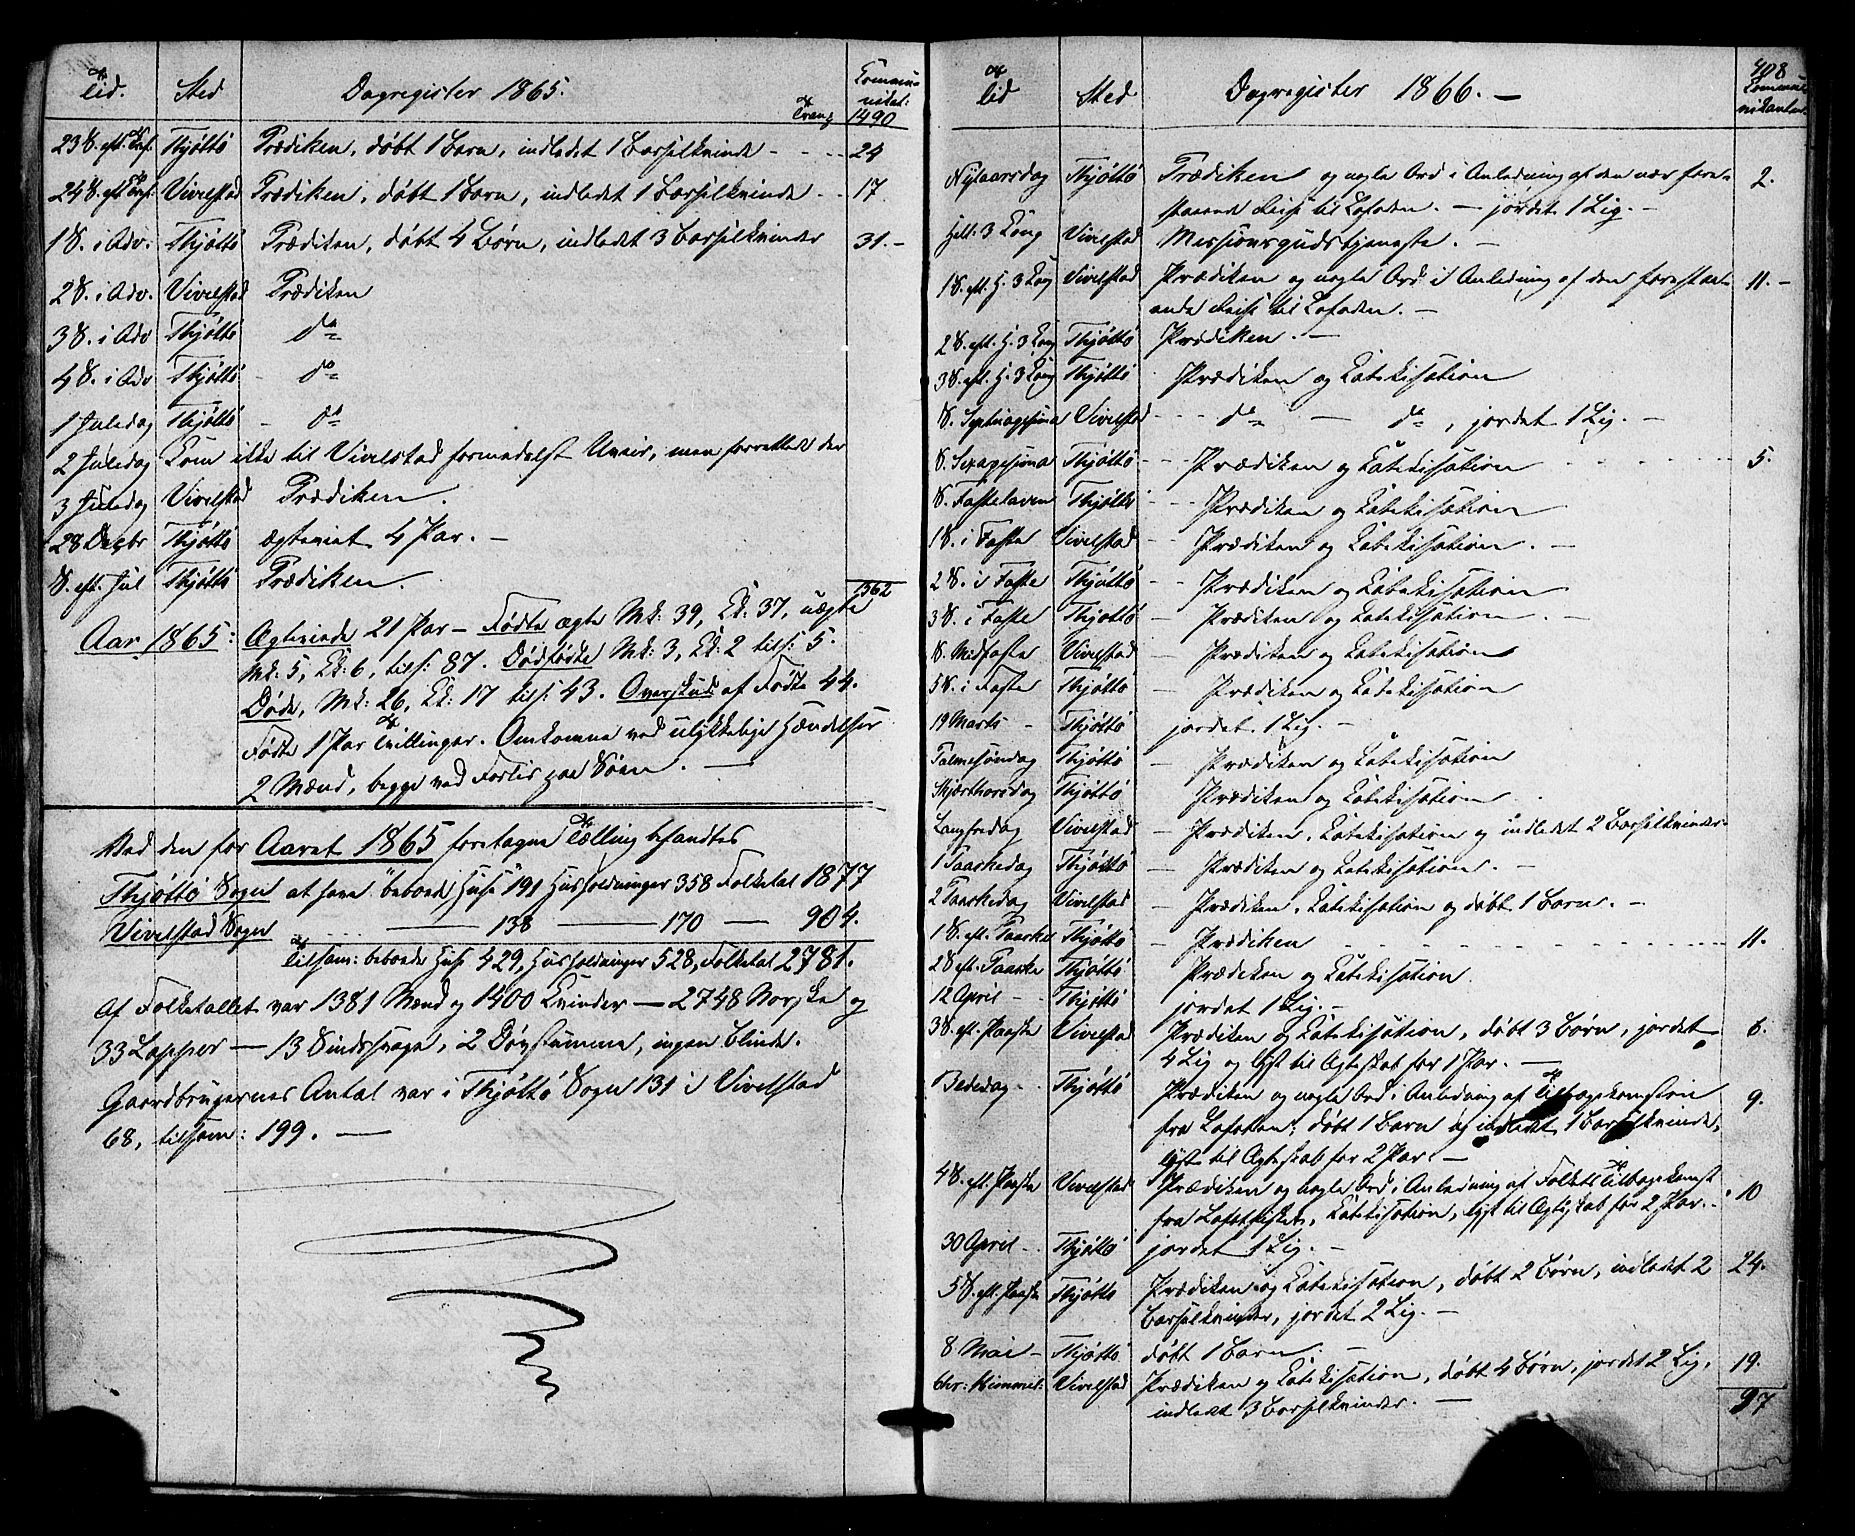 Tid. Sted Dagregister 1865. Communi-
nikat:
Transp 1490
23 S. eft. Tref. Thjøttø Prædiken, døbt 1 Barn, indledet 1 Barselkvinde - - - 24
24 S. eft. Tref. Vivelstad Prædiken, døbt 1 Barn, indledet 1 Barselkvinde - - 17
1 S. i Adv. Thjøttø Prædiken, døbt 4 Børn, indledet 3 Barselkvinder 31. -
2 S. i Adv. Vivelstad Prædiken
3 S. i Adv Thjøttø do
4 S. i Adv Thjøttø - do
1 Juledag Thjøttø - do
2 Juledag Kom ikke til Vivelstad formedelst Uveir, men forrettede der
3 Juledag Vivelstad Prædiken.
28 Decbr Thjøttø ægteviet 4 Par. -
S. eft. Jul Thjøttø Prædiken.
1562
Aar 1865: Ægteviede 21 Par - Fødte ægte Mk: 39, Kk: 37, uægte
Mk: 5, Kk: 6, tils: 87. Dødfødte Mk: 3, Kk: 2 tils: 5.
Døde, Mk: 26, Kk: 17 tils: 43. Overskud af Fødte 44.
Fødte 1 Par Tvillinger. Omkomne ved ulykkelige Hændelser
2 Mænd, begge ved Forlis paa Søen. -
Ved den for Aaret 1865 foretagne Tælling befandtes
Thjøttø Sogn at have beboede Huse 191 Husholdninger 358 Folketal 1877
Vivelstad Sogn - 138 - 170 - 904.
Tilsam: beboede Huse 429, Husholdninger 528, Folketal 2781.
Af Folketallet var 1381 Mænd og 1400 Kvinder - 2748 Norske og
33 Lapper - 13 Sindssvage, 2 Døvstumme, ingen Blinde.
Gaardbrugernes Antal var i Thjøttø Sogn 131 i Vivelstad
68, tilsam: 199. -
408
Tid Sted Dagregister 1866. - Communi-
nikanter
Nytaarsdag Thjøttø Prædiken og nogle Ord i Anledning af den nær fore- 2.
staaende Reise til Lofoden. - jordet 1 Lig. -
Hell: 3 Kong Vivelstad Missionsgudstjeneste. -
1 S. eft. H. 3 Kong Vivelstad Prædiken og nogle Ord i Anledning af den forestaa- 11. -
ende Reise til Lofoden. -
2 S. eft. H. 3 Kong Thjøttø Prædiken. -
3 S. eft. H. 3 Kong Thjøttø Prædiken og Katekisation
S. Septuagesima Vivelstad - - do - do, jordet 1 Lig. -
S. Sexagesima Thjøttø - - Prædiken og Katekisation - - - - 5.
S. Fastelaven Thjøttø - - Prædiken og Katekisation
1 S. i Faste Vivelstad - Prædiken og Katekisation. -
2 S. i Faste Thjøttø - - Prædiken og Katekisation
3 S. i Faste Thjøttø - Prædiken og Katekisation. -
S. Midfaste Vivelstad - Prædiken og Katekisation
5 S. i Faste Thjøttø - Prædiken og Katekisation
19 Marts - Thjøttø jordet 1 Lig. -
Palmesøndag Thjøttø - Prædiken og Katekisation
Skjærthorsdag Thjøttø Prædiken og Katekisation
Langfredag Vivelstad - Prædiken, Katekisation og indledet 2 Barselkvinder
1 Paaskedag Thjøttø - Prædiken og Katekisation. -
2 Paaskedag Vivelstad - Prædiken, Katekisation og døbt 1 Barn. -
1 S. eft. Paaske Thjøttø - Prædiken - - - - - - 11.
2 S. eft. Paaske Thjøttø Prædiken og Katekisation.
12 April - Thjøttø jordet 1 Lig. -
3 S. eft. Paaske Vivelstad Prædiken og Katekisation, døbt 3 Børn, jordet 6.
4 Lig og lyst til Ægteskab for 1 Par. -
Bededag - Thjøttø Prædiken og nogle Ord i Anledning af Tilbagekomsten 9.
fra Lofoden, døbt 1 Barn og indledet 1 Barselkvinde,
lyst til Ægteskab for 2 Par. -
4 S. eft. Paaske Vivelstad Prædiken og nogle Ord i Anledning af Folkets Tilbagekomst 10
fra Lofotfisket, Katekisation, lyst til Ægteskab for 2 Par. -
30 April - Thjøttø jordet 1 Lig. -
5 S. eft. Paaske Thjøttø Prædiken og Katekisation, døbt 2 Børn, indledet 2 24.
Barselkvinder, jordet 2 Lig. -
8 Mai - Thjøttø døbt 1 Barn. -
Chr: Himmel: Vivelstad Prædiken og Katekisation, døbt 4 Børn, jordet 2 Lig, 19.
indledet 3 Barselkvinder. -
97